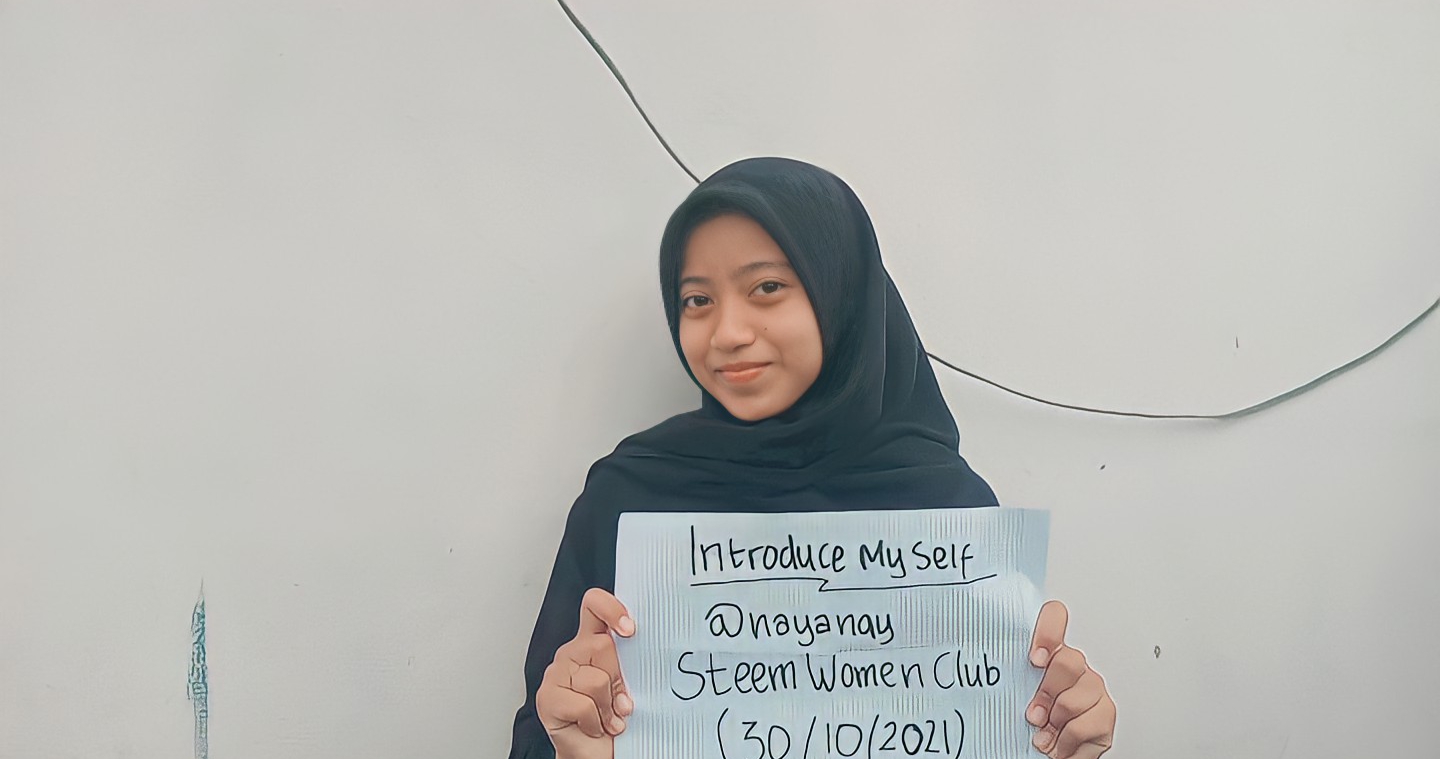 Introduce My Self
@nayanay
Steem Women Club
(30/10/2021)